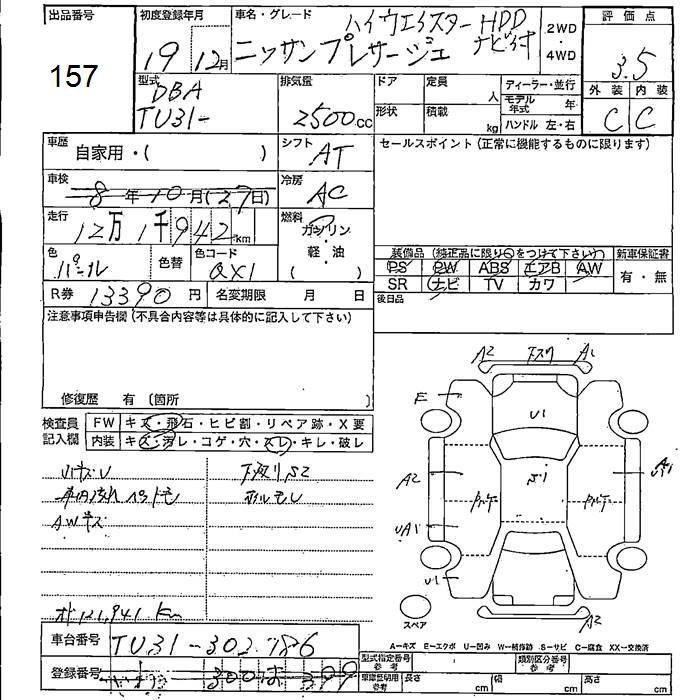 出品番号
157
初度登録年月
19 12月
車名・グレード
ハイウェイスター HDD
ナビ付
ニッサンプレサージュ
2WD
・
4WD
評価点
3.5
外装 内装
C C
型式
DBA
TU31-
排気量
2500cc
ドア
定員
人
形状
積載
kg
ディーラー・並行
モデル年式 年
ハンドル 左・右
車歴
自家用・( )
シフト
AT
セールスポイント(正常に機能するものに限ります)
車検
8年10月(27日)
冷房
AC
走行
12万1千942km
燃料
ガソリン
・
軽・油
( )
色
パール
色替
色コード
QX1
装備品(純正品に限り○をつけて下さい)
新車保証書
PS PW ABS エアB AW
SR ナビ TV カワ
有・無
後日品
R券 13390円
名変期限 月 日
注意事項申告欄(不具合内容等は具体的に記入して下さい)
修復歴 有 (箇所 )
検査員
記入欄
FW キズ・飛石・ヒビ割・リペア跡・X要
内装 キズ・汚レ・コゲ・穴・スレ・キレ・破レ
AWキズ
121,941 km
A2
下スリ
A1
E
U1
A2
S1
UA1
U1
A2
スペア
A=キズ E=エクボ U=凹み W=補修跡 S=サビ C=腐食 XX=交換済
車台番号
TU31-302786
登録番号
300 は 399
型式指定番号
参考
類別区分番号
参考
車庫証明用
参考
長さ cm
幅 cm
高さ cm